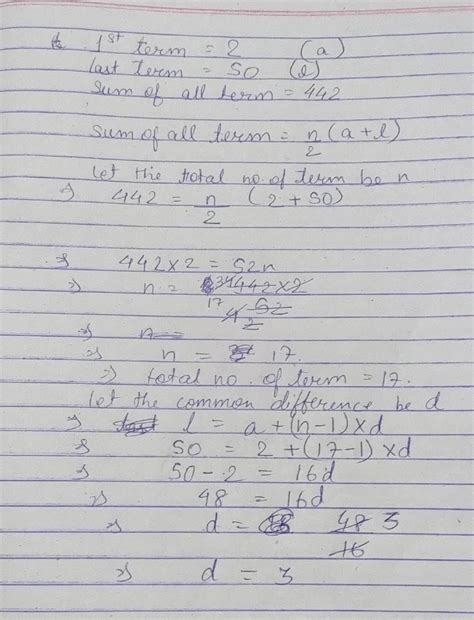 1st term = 2 (a)
last term = 50 (l)
Sum of all term = 442
Sum of all term = n/2 (a+l)
let the total no. of term be n
⇒ 442 = n/2 (2 + 50)
⇒ 442×2 = 52n
⇒ n = 442×2/52
⇒ n =
⇒ n = 17.
⇒ total no. of term = 17.
let the common difference be d
⇒ l = a+(n-1)×d
⇒ 50 = 2+(17-1)×d
⇒ 50-2 = 16d
⇒ 48 = 16d
⇒ d = 48/16 3
⇒ d = 3